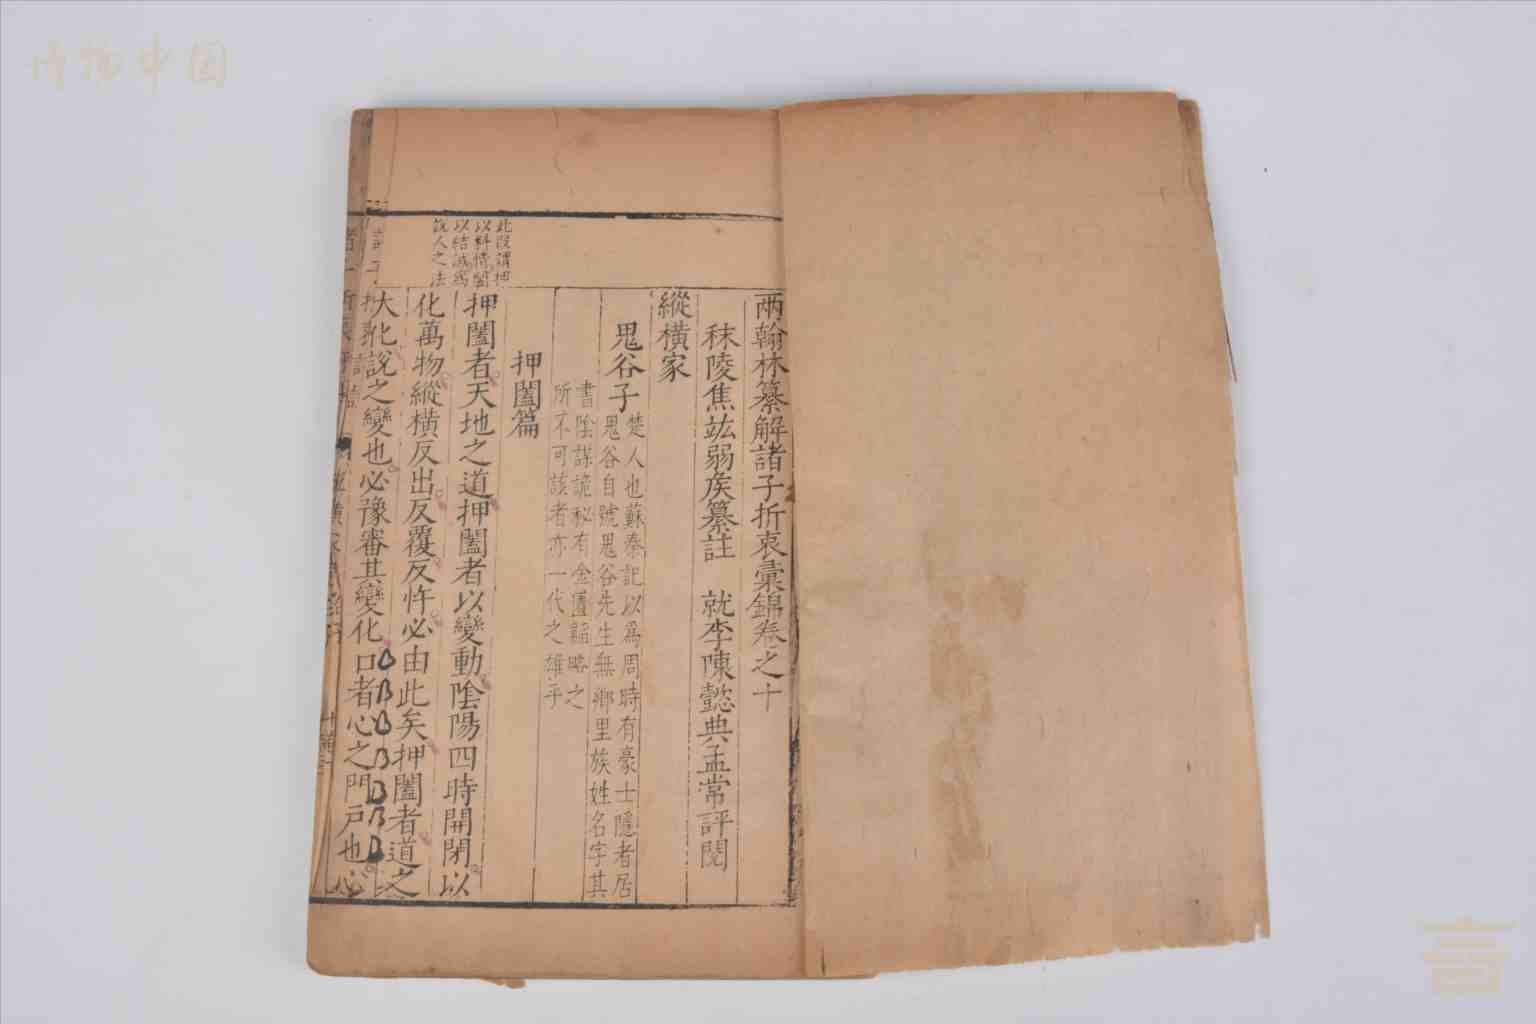 兩翰林纂解諸子折衷彙錦卷之十
秣陵焦竑弱侯纂註 就李陳懿典孟常評閱
縱橫家
鬼谷子
楚人也蘇秦記以爲周時有豪士隱者居
鬼谷自號鬼谷先生無鄉里族姓名字其
書陰謀詭秘有金匱韜略之
所不可該者亦一代之雄乎
押闔篇
押闔者天地之道押闔者以變動陰陽四時開閉以
化萬物縱橫反出反覆反忤必由此矣押闔者道之
大化說之變也必豫審其變化口者心之門戶也心
此段謂押
以料情闔
以結誠爲
說人之法
博物中国